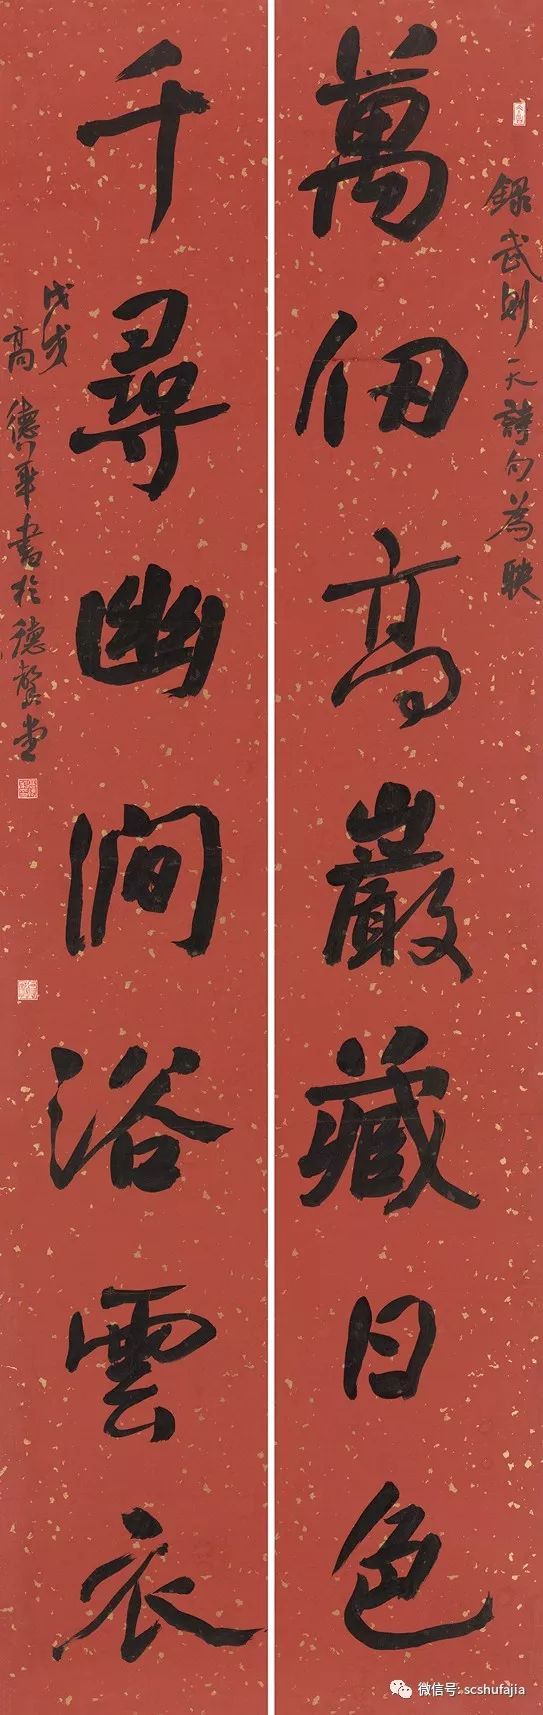 錄武則天詩句為联
萬仞高巖藏日色
千尋幽澗浴雲衣
戊戌
高德華書於德馨堂
微信号: scshufajia